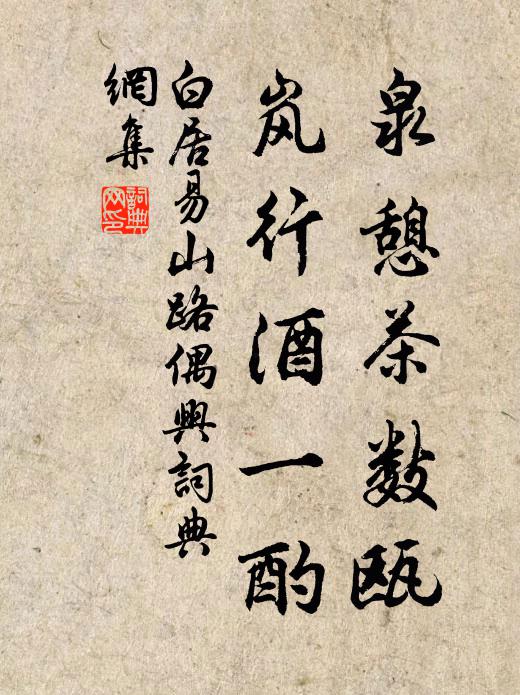 泉憩茶数瓯
岚行酒一酌
白居易山路偶興詞典
網集
詞典网印